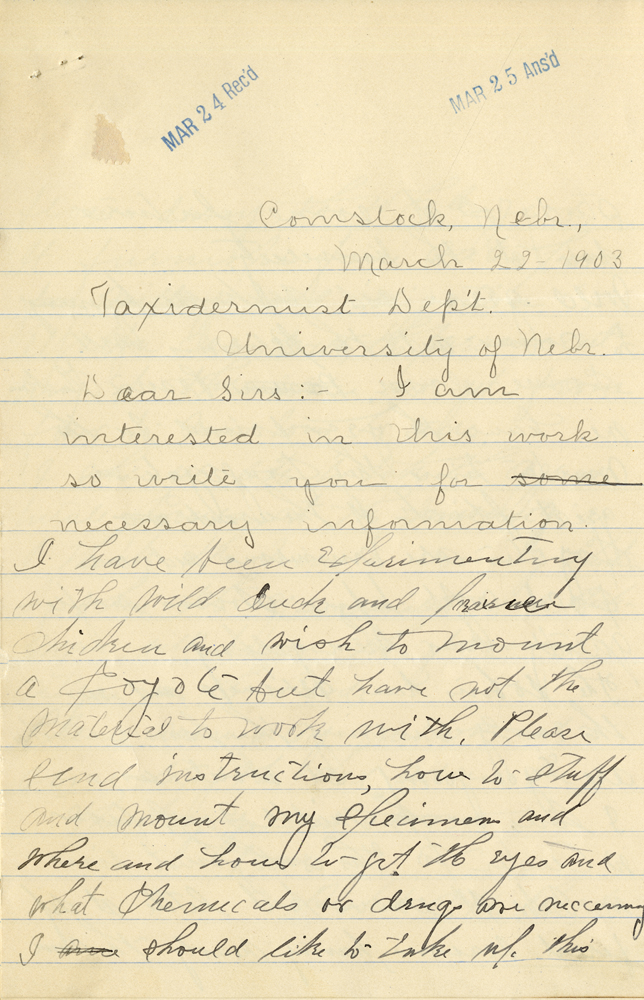 MAR 24 Rec'd
MAR 25 Ans'd
Comstock, Nebr.,
March 22-1903
Taxidermist Dep't.
University of Nebr.
Dear Sirs:- I am
interested in this work
so write you for some
necessary information.
I have been Experimenting
with wild duck and prairie
chicken and wish to mount
a Coyote but have not the
material to work with. Please
send instructions, how to stuff
and mount my specimens and
where and how to get the eyes and
what Chemicals or drugs are neccessary
I am should like to take up this